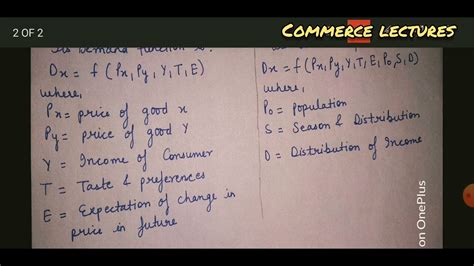 2 OF 2
COMMERCE LECTURES
its Demand function is:
Dx = f (Px, Py, Y, T, E)
where,
Px = price of good x
Py = price of good Y
Y = Income of Consumer
T = Taste & preferences
E = Expectation of change in
price in future
Dx = f (Px, Py, Y, T, E, Po, S, D)
where,
Po = Population
S = Season & Distribution
D = Distribution of Income
on OnePlus